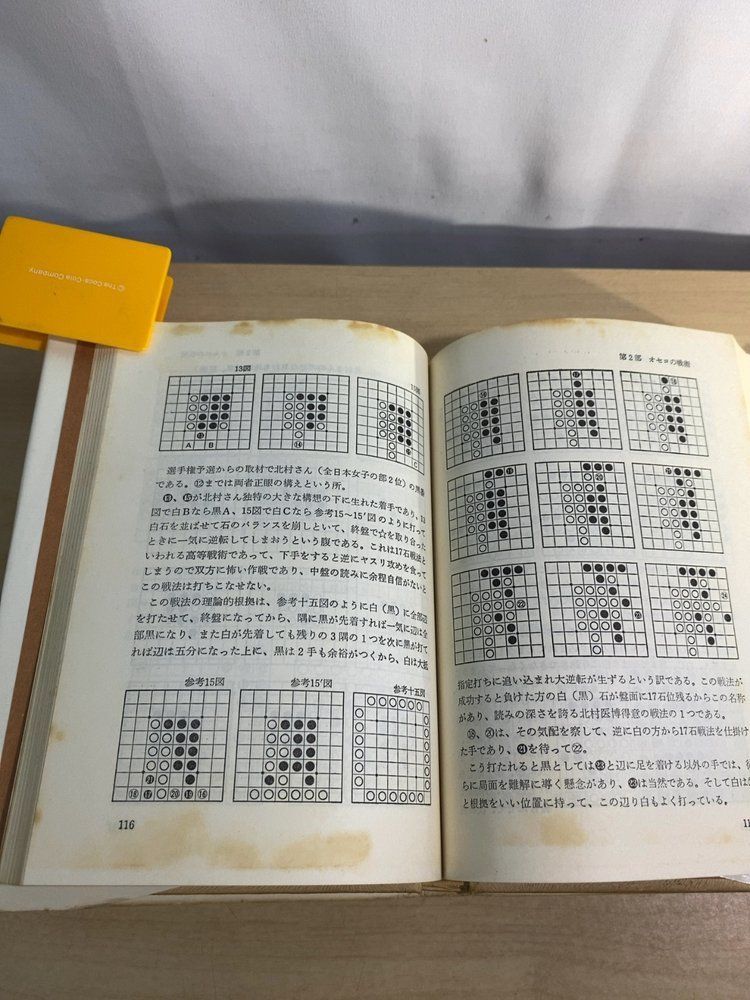 © The Coca-Cola Company
13図
選手権予選からの取材で北村さん（全日本女子の部2位）の黒番
である。⑫までは両者正眼の構えという所。
⓭、⓯が北村さん独特の大きな構想の下に生れた着手であり、13
図で白Bなら黒A、15図で白Cなら参考15〜15′図のように打って
白石を並ばせて石のバランスを崩しといて、終盤で☆を取り合った
ときに一気に逆転してしまおうという腹である。これは17石戦法と
いわれる高等戦術であって、下手をすると逆にヤスリ攻めを食って
しまうので双方に怖い作戦であり、中盤の読みに余程自信がないと
この戦法は打ちこなせない。
この戦法の理論的根拠は、参考十五図のように白（黒）に全部辺
を打たせて、終盤になってから、隅に黒が先着すれば一気に辺は全
部黒になり、また白が先着しても残りの3隅の1つを次に黒が打て
れば辺は五分になった上に、黒は2手も余裕がつくから、白は大抵
参考15図
参考15′図
参考十五図
116
第2部 オセロの戦術
指定打ちに追い込まれ大逆転が生ずるという訳である。この戦法が
成功すると負けた方の白（黒）石が盤面に17石位残るからこの名称
があり、読みの深さを誇る北村医博得意の戦法の1つである。
⑱、⑳は、その気配を察して、逆に白の方から17石戦法を仕掛け
た手であり、㉑を待って㉒。
こう打たれると黒としては㉓と辺に足を着ける以外の手では、
らに局面を難解に導く懸念があり、㉓は当然である。そして白は
と根拠をいい位置に持って、この辺り白もよく打っている。